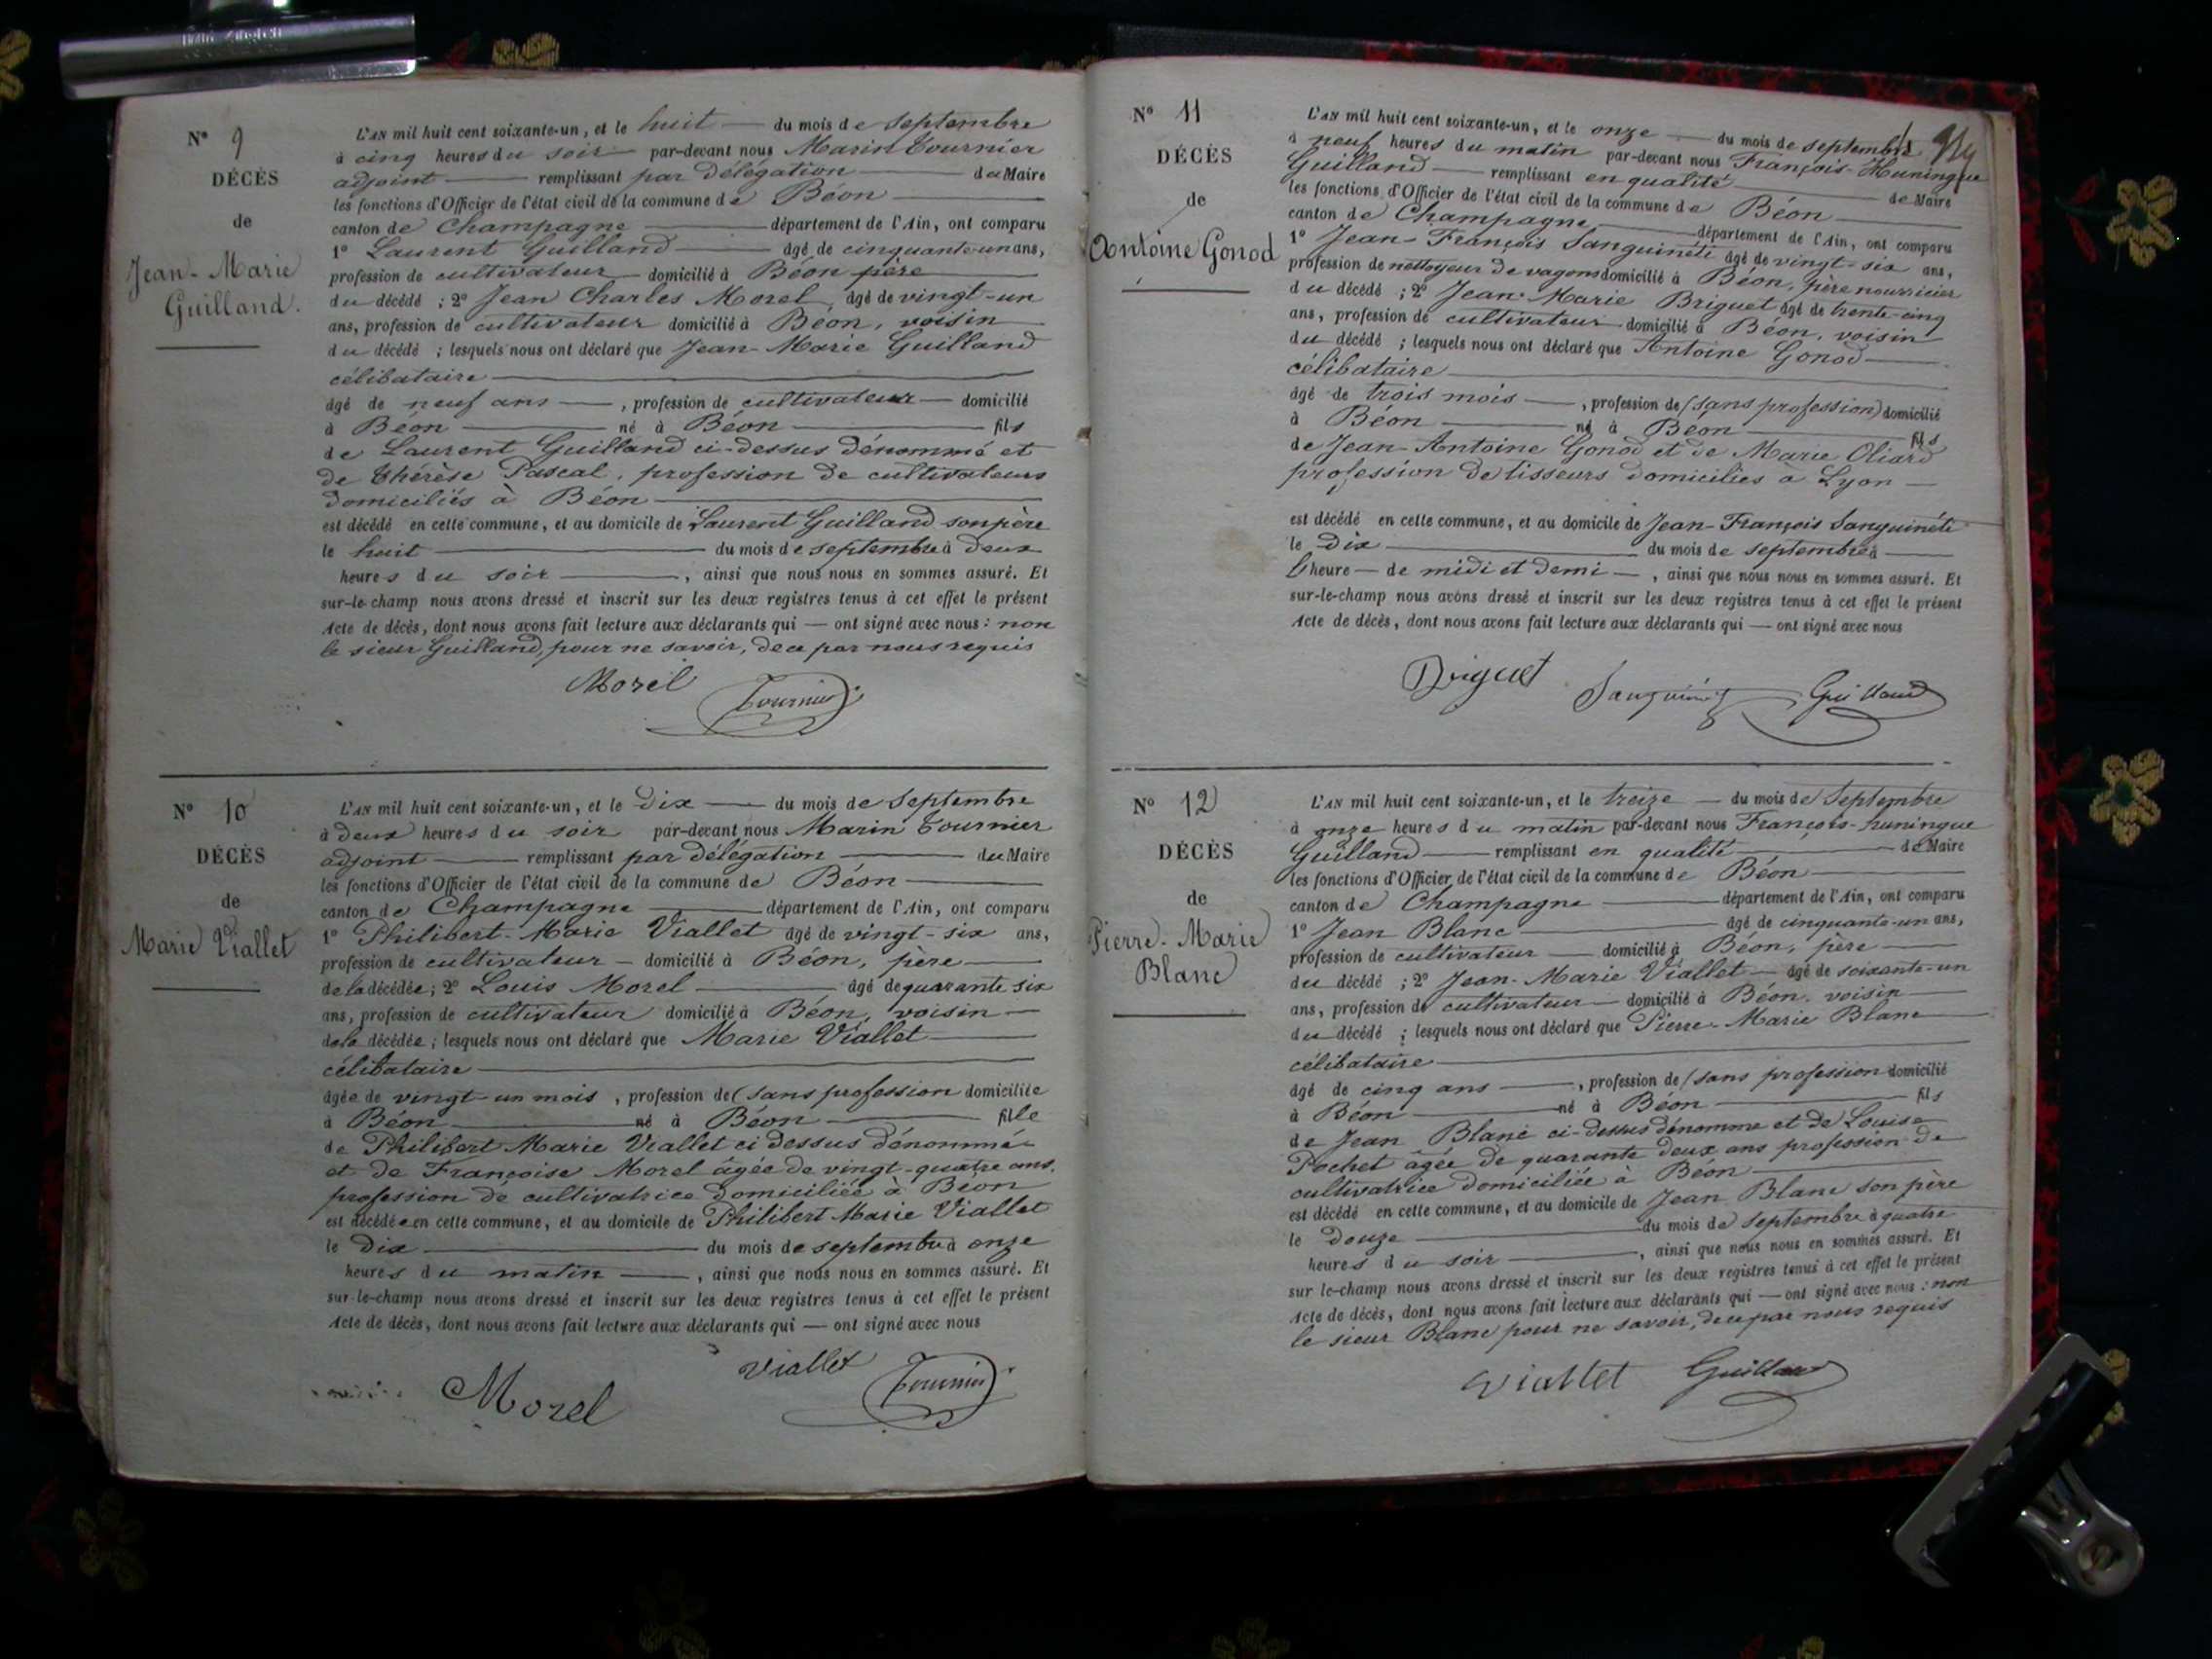 Nº 9
DÉCÈS
de
Jean-Marie
Guilland.
L'AN mil huit cent soixante-un, et le huit — du mois de Septembre
à cinq heures du soir par-devant nous Marin Tournier
adjoint — remplissant par délégation — du Maire
les fonctions d'Officier de l'état civil de la commune de Béon —
canton de Champagne — département de l'Ain, ont comparu
1º Laurent Guilland — âgé de cinquante-un ans,
profession de cultivateur — domicilié à Béon père
du décédé ; 2º Jean Charles Morel, âgé de vingt-un
ans, profession de cultivateur domicilié à Béon, voisin
du décédé ; lesquels nous ont déclaré que Jean-Marie Guilland
célibataire —
âgé de neuf ans —, profession de cultivateur — domicilié
à Béon — né à Béon — fils
de Laurent Guilland ci-dessus dénommé et
de Thérèse Pascal, profession de cultivateurs
domiciliés à Béon —
est décédé en cette commune, et au domicile de Laurent Guilland son père
le huit — du mois de septembre à deux
heures du soir —, ainsi que nous nous en sommes assuré. Et
sur-le-champ nous avons dressé et inscrit sur les deux registres tenus à cet effet le présent
Acte de décès, dont nous avons fait lecture aux déclarants qui — ont signé avec nous : non
le sieur Guilland, pour ne savoir, de ce par nous requis
Morel Tournier
Nº 10
DÉCÈS
de
Marie Viallet
L'AN mil huit cent soixante-un, et le dix — du mois de Septembre
à deux heures du soir par-devant nous Marin Tournier
adjoint — remplissant par délégation — du Maire
les fonctions d'Officier de l'état civil de la commune de Béon —
canton de Champagne — département de l'Ain, ont comparu
1º Philibert-Marie Viallet âgé de vingt-six ans,
profession de cultivateur — domicilié à Béon, père —
de la décédée ; 2º Louis Morel — âgé de quarante six
ans, profession de cultivateur domicilié à Béon, voisin —
de la décédée ; lesquels nous ont déclaré que Marie Viallet —
célibataire —
âgée de vingt-un mois, profession de (sans profession domiciliée
à Béon — né à Béon — fille
de Philibert Marie Viallet ci dessus dénommé
et de Françoise Morel âgée de vingt-quatre ans,
profession de cultivatrice domiciliée à Béon
est décédée en cette commune, et au domicile de Philibert Marie Viallet
le dix — du mois de septembre à onze
heures du matin —, ainsi que nous nous en sommes assuré. Et
sur-le-champ nous avons dressé et inscrit sur les deux registres tenus à cet effet le présent
Acte de décès, dont nous avons fait lecture aux déclarants qui — ont signé avec nous
Morel Viallet Tournier
Nº 11
DÉCÈS
de
Antoine Gonod
L'AN mil huit cent soixante-un, et le onze — du mois de septembre
à neuf heures du matin par-devant nous François-Huningue
Guilland — remplissant en qualité — de Maire
les fonctions d'Officier de l'état civil de la commune de Béon —
canton de Champagne — département de l'Ain, ont comparu
1º Jean-François Sanguinéti âgé de vingt-six ans,
profession de nettoyeur de vagons domicilié à Béon, père nourricier
du décédé ; 2º Jean-Marie Briguet âgé de trente-cinq
ans, profession de cultivateur — domicilié à Béon, voisin
du décédé ; lesquels nous ont déclaré que Antoine Gonod —
célibataire —
âgé de trois mois —, profession de (sans profession) domicilié
à Béon — né à Béon — fils
de Jean-Antoine Gonod et de Marie Oliard
profession de tisseurs domiciliés à Lyon —
est décédé en cette commune, et au domicile de Jean-François Sanguinéti
le dix — du mois de septembre à —
l'heure — de midi et demi —, ainsi que nous nous en sommes assuré. Et
sur-le-champ nous avons dressé et inscrit sur les deux registres tenus à cet effet le présent
Acte de décès, dont nous avons fait lecture aux déclarants qui — ont signé avec nous
Briguet Sanguinéti Guilland
Nº 12
DÉCÈS
de
Pierre-Marie
Blanc
L'AN mil huit cent soixante-un, et le treize — du mois de Septembre
à onze heures du matin par-devant nous François-huningue
Guilland — remplissant en qualité — de Maire
les fonctions d'Officier de l'état civil de la commune de Béon —
canton de Champagne — département de l'Ain, ont comparu
1º Jean Blanc — âgé de cinquante-un ans,
profession de cultivateur — domicilié à Béon, père —
du décédé ; 2º Jean-Marie Viallet — âgé de soixante-un
ans, profession de cultivateur — domicilié à Béon, voisin —
du décédé ; lesquels nous ont déclaré que Pierre-Marie Blanc
célibataire —
âgé de cinq ans —, profession de (sans profession domicilié
à Béon — né à Béon — fils
de Jean Blanc ci-dessus dénommé et de Louise
Pochet âgée de quarante deux ans profession de
cultivatrice domiciliée à Béon —
est décédé en cette commune, et au domicile de Jean Blanc son père
le douze — du mois de septembre à quatre
heures du soir —, ainsi que nous nous en sommes assuré. Et
sur le-champ nous avons dressé et inscrit sur les deux registres tenus à cet effet le présent
Acte de décès, dont nous avons fait lecture aux déclarants qui — ont signé avec nous : non
le sieur Blanc pour ne savoir, de ce par nous requis
Viallet Guilland